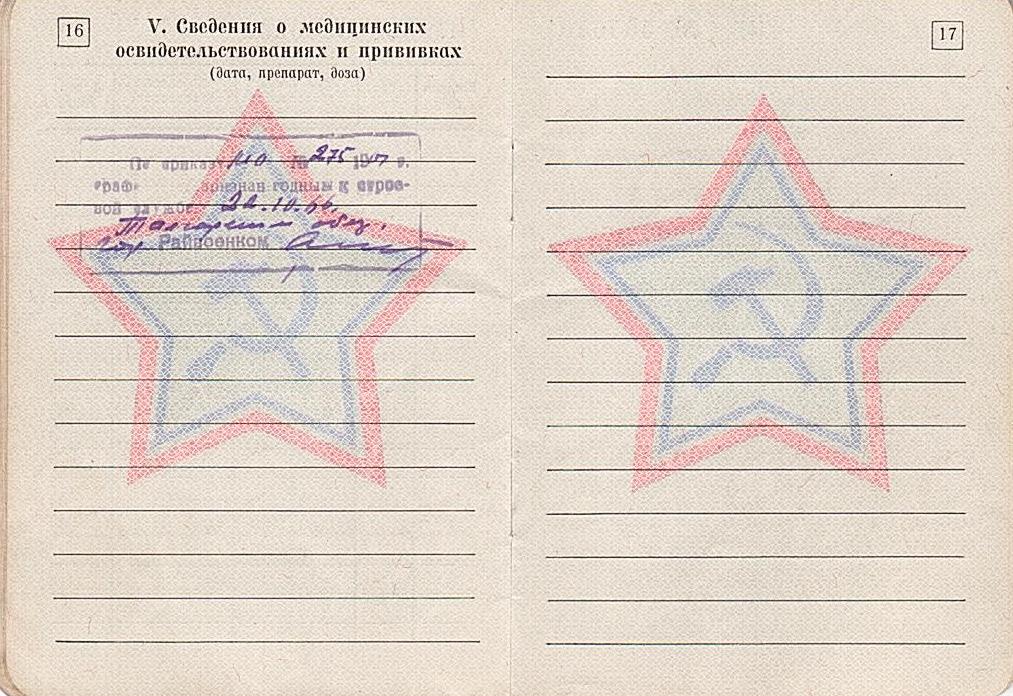 16
V. Сведения о медицинских
освидетельствованиях и прививках
(дата, препарат, доза)
По приказу МО № 275 19 г.
граф. признан годным к строе-
вой службе 22.10.
Райвоенком
17